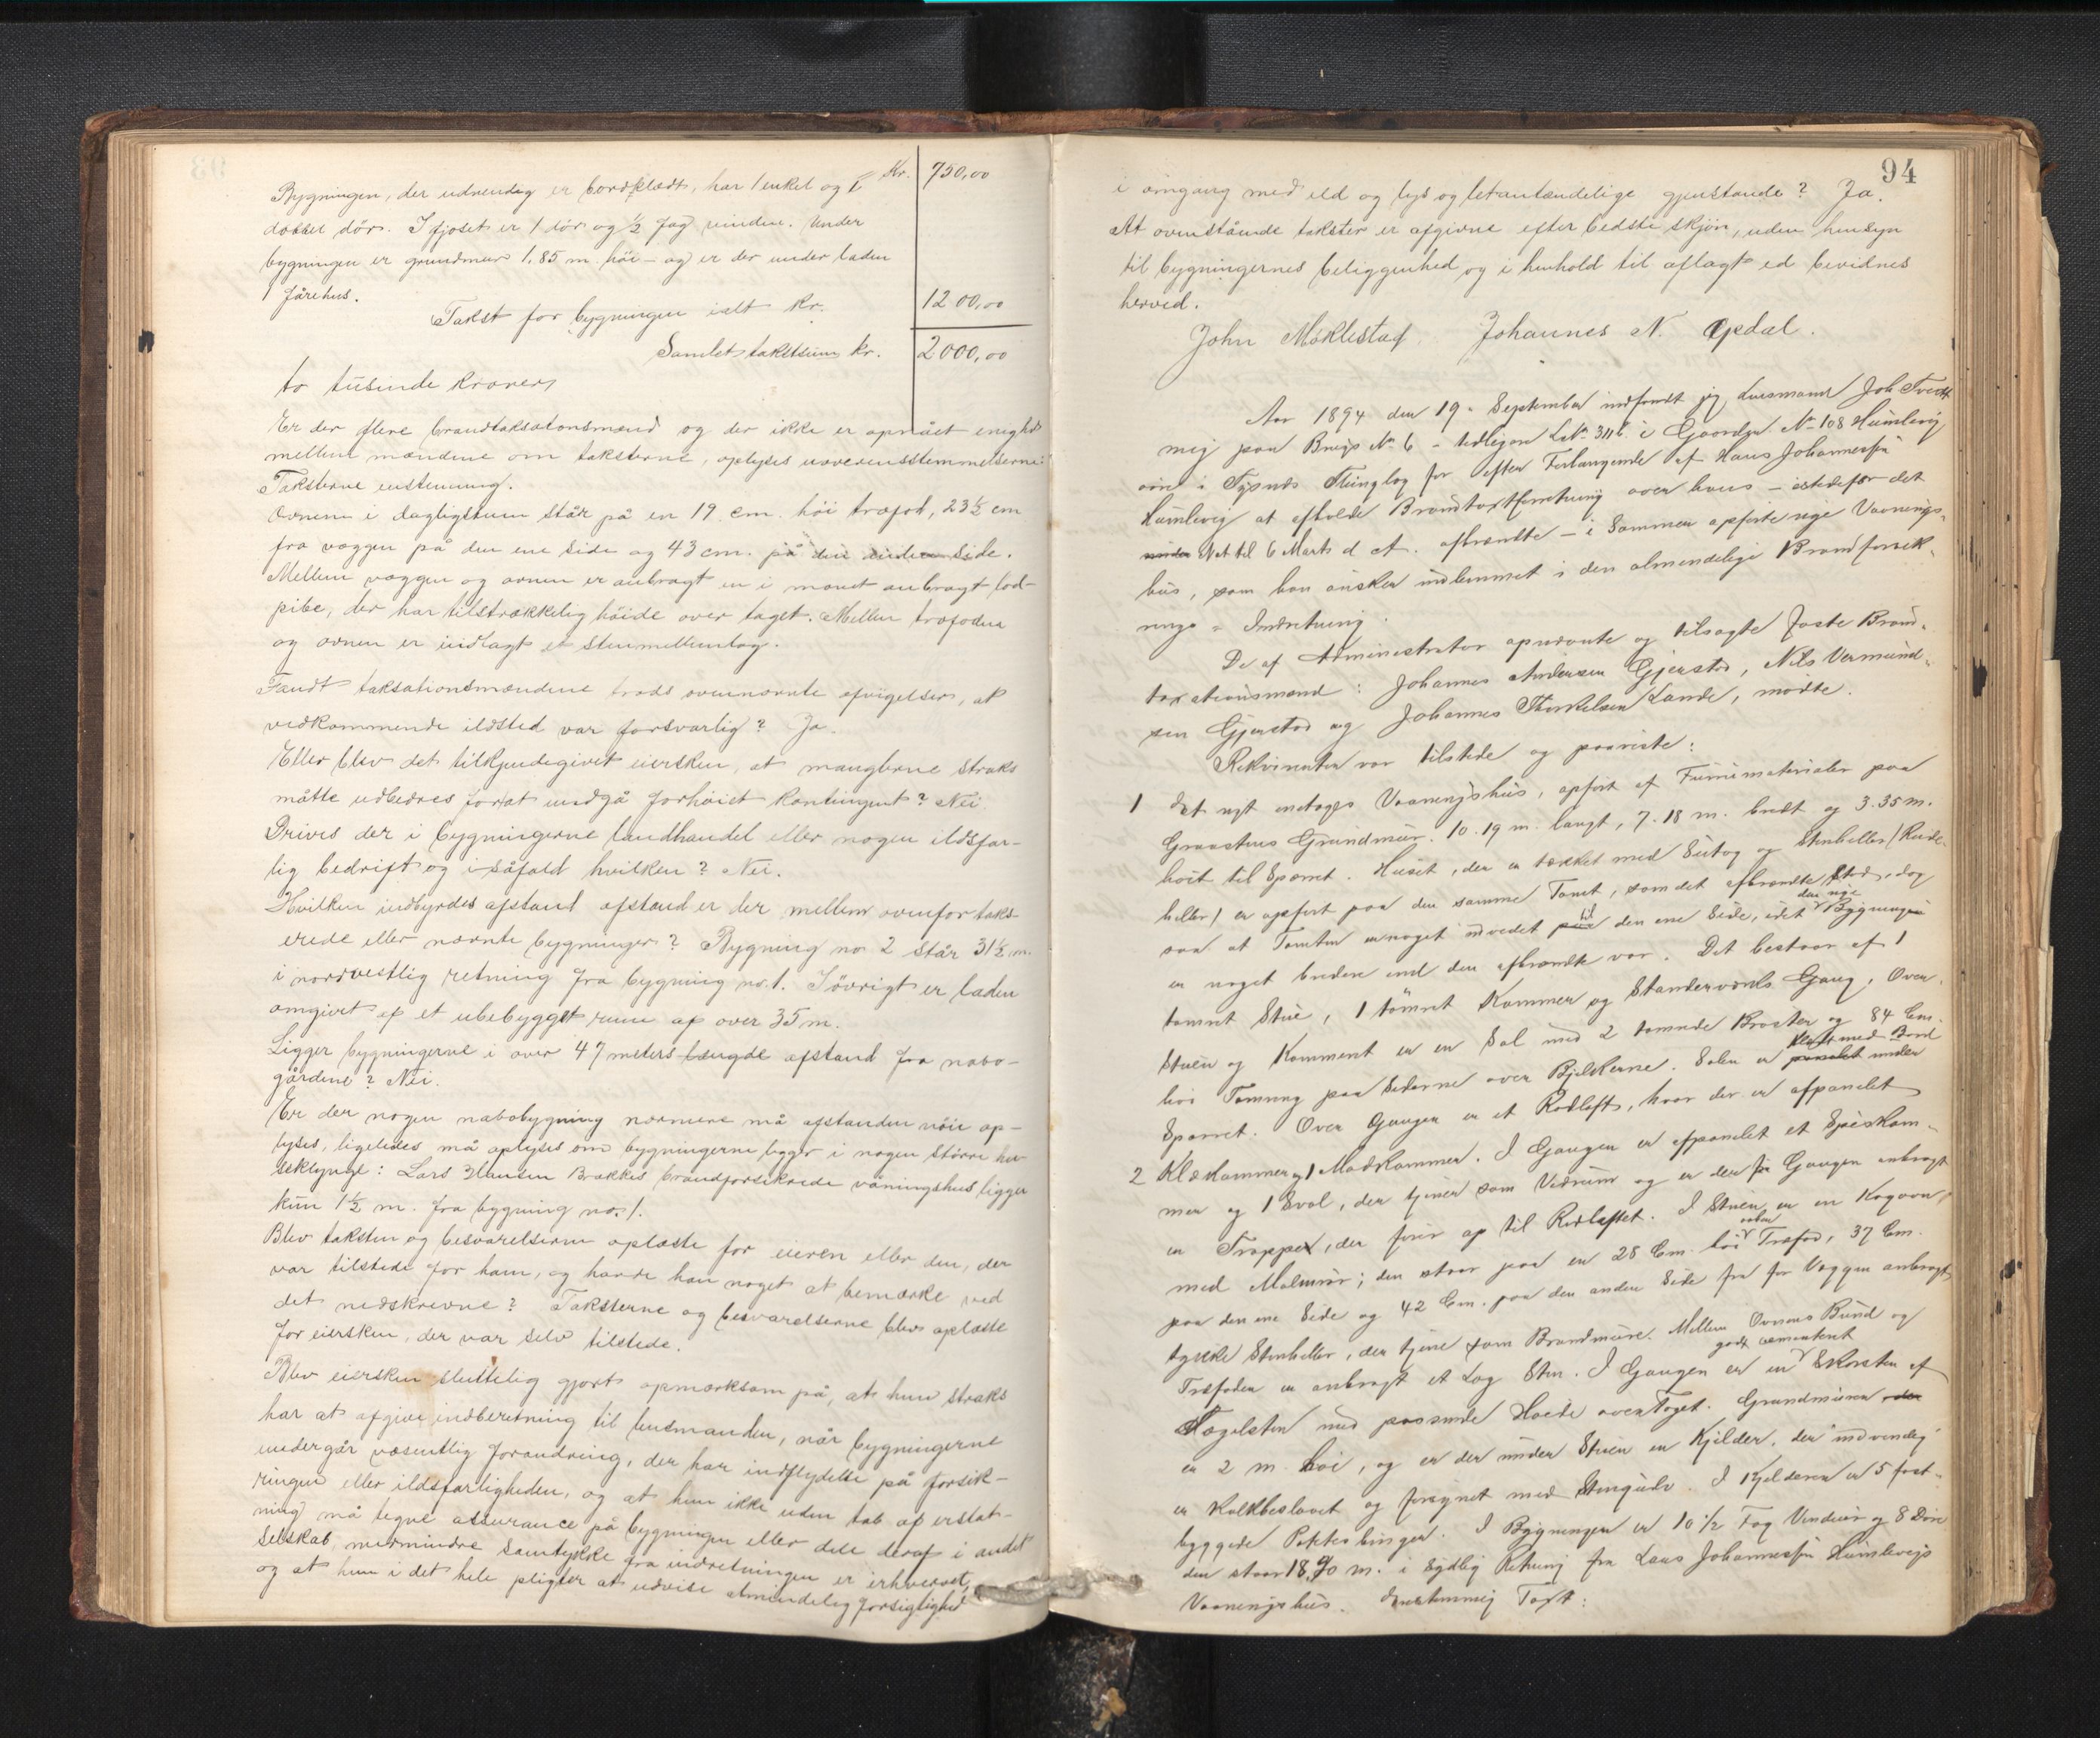 Kr. 750,00
Bygningen, der udvendig er bordklædt, har 1 enkel og 1
dobbel dör. I fjöset er 1 dör og ½ fag vindue. Under
bygningen er grundmur 1,85 m. höi – og er der under laden
1 fårehus.
Takst for bygningen ialt kr. 1200,00
Samlet takstsum kr. 2000,00
to tusinde kroner
Er der flere brandtaksationsmænd og der ikke er opnået enighed
mellem mændene om taksterne, oplyses uoverensstemmelserne:
Taksterne enstemmig.
Ovnen i dagligstuen står på en 19 cm. höi træfod, 23½ cm
fra væggen på den ene side og 43 cm. på den anden side.
Mellem væggen og ovnen er anbragt en i muret anbragt
pibe, der har tilstrækkelig höide over taget. Mellem træfoden
og ovnen er indlagt et stenmellemlag.
Fandt taksationsmændene trods ovennævnte afvigelser, at
vedkommende ildsted var forsvarlig? Ja.
Eller blev det tilkjendegivet eiersken, at manglerne straks
måtte udbedres for at undgå forhöiet kontingent? Nei.
Drives der i bygningerne landhandel eller nogen ildsfar-
lig bedrift og i såfald hvilken? Nei.
Hvilken indbyrdes afstand afstand er der mellem ovenfor taks-
erede eller nævnte bygninger? Bygning no. 2 står 31½ m.
i nordvestlig retning fra bygning no. 1. Iövrigt er laden
omgivet af et ubebygget rum af over 35 m.
Ligger bygningerne i over 47 meters længde afstand fra nabo-
gårdene? Nei.
Er der nogen nabobygning nærmere må afstanden nöie op-
lyses, ligeledes må oplyses om bygningerne ligger i nogen större hu-
seklynge: Lars Hansen Brækkes brandforsikrede våningshus ligger
kun 1½ m. fra bygning no. 1.
Blev taksten og besvarelserne oplæste for eieren eller den, der
var tilstede for ham, og havde han noget at bemærke ved
det nedskrevne? Taksterne og besvarelserne blev oplæste
for eiersken, der var selv tilstede.
Blev eiersken sluttelig gjort opmærksom på, at hun straks
har at afgive indberetning til lensmanden, når bygningerne
undergår væsentlig forandring, der har indflydelse på forsik-
ringen eller ildsfarligheden, og at hun ikke uden tab af erstat-
ning må tegne assurance på bygningen eller dele deraf i andet
selskab, medmindre samtykke fra indretningen er erhvervet,
og at hun i det hele pligter at udvise almindelig forsigtighed
94
i omgang med ild og lys og letantændelige gjenstande? Ja.
At ovenstående takster er afgivne efter bedste skjön, uden hensyn
til bygningernes beliggenhed og i henhold til aflagt ed bevidnes
herved.
John Møklestad. Johannes N. Opdal.
Aar 1894 den 19. September indfandt jeg Lensmand Joh Tvedt
mig paa Brugs No 6 – tidligere LNo 311b i Gaarden No 108 Humlevig
i Tysnæs Thinglag for efter Forlangende af Hans Johannessen
Humlevig at afholde Brandtaxtforretning over hans – istedetfor det
Nat til 6 Marts d A. afbrændte – i Sommer opførte nye Vaanings-
hus, som han ønsker indlemmet i den almindelige Brandforsik-
rings-Indretning.
De af Administrator opnævnte og tilsagte faste Brand-
taxationsmænd: Johannes Andersen Gjerstad, Nils Vermund-
sen Gjerstad og Johannes Thorkelsen Lande, mødte.
Rekvirenten var tilstede og paaviste:
1 Et nyt enetages Vaaningshus, opført af Furumaterialer paa
Graastens Grundmur. 10.19 m. langt, 7.18 m. bredt og 3.35 m.
høit til Sparret. Huset, der er tækket med Sutag og Stenheller (Rude-
heller) er opført paa den samme Tomt, som det afbrændte stod, dog
saa at Tomten er noget udvidet paa til den ene Side, idet den nye Bygningen
er noget bredere end den afbrændte var. Det bestaar af 1
tømret Stue, 1 tømret Kammer og Standerværks Gang. Over
Stuen og Kammeret er en Sal med 2 tømrede Brøster og 84 Cm.
høi Tømring paa Siderne over Bjelkerne. Salen er panelet klædt med Bord under
Sparret. Over Gangen er et Rodloft, hvor der er afpanelet
2 Klækammer og 1 Madkammer. I Gangen er afpanelet et Spiskam-
mer og 1 Sval, der tjener som Vedrum og er der fra Gangen anbragt
en Trappe, der fører op til Rodloftet. I Stuen er en Kogeovn
med Malmrør; den staar paa en 28 Cm. høi Træfod, 37 Cm.
paa den ene Side og 42 Cm. paa den anden Side fra for Væggen anbragt
tykke Stenheller, der tjene som Brandmure. Mellem Ovnens Bund og
Træfoden er anbragt et Lag Sten. I Gangen er en godt cementeret Skorsten af
Tægelsten med passende Høide over Taget. Grundmuren
er 2 m. høi, og er der under Stuen en Kjelder, der indvendig
er kalkbeslaaet og forsynet med Stengulv. I Kjelderen er 5 fast-
byggede Potetesbinger. I Bygningen er 10½ Fag Vinduer og 8 Døre
den staar 18,90 m. i sydlig Retning fra Lars Johannessen Humlevigs
Vaaningshus. Enstemmig Taxt: